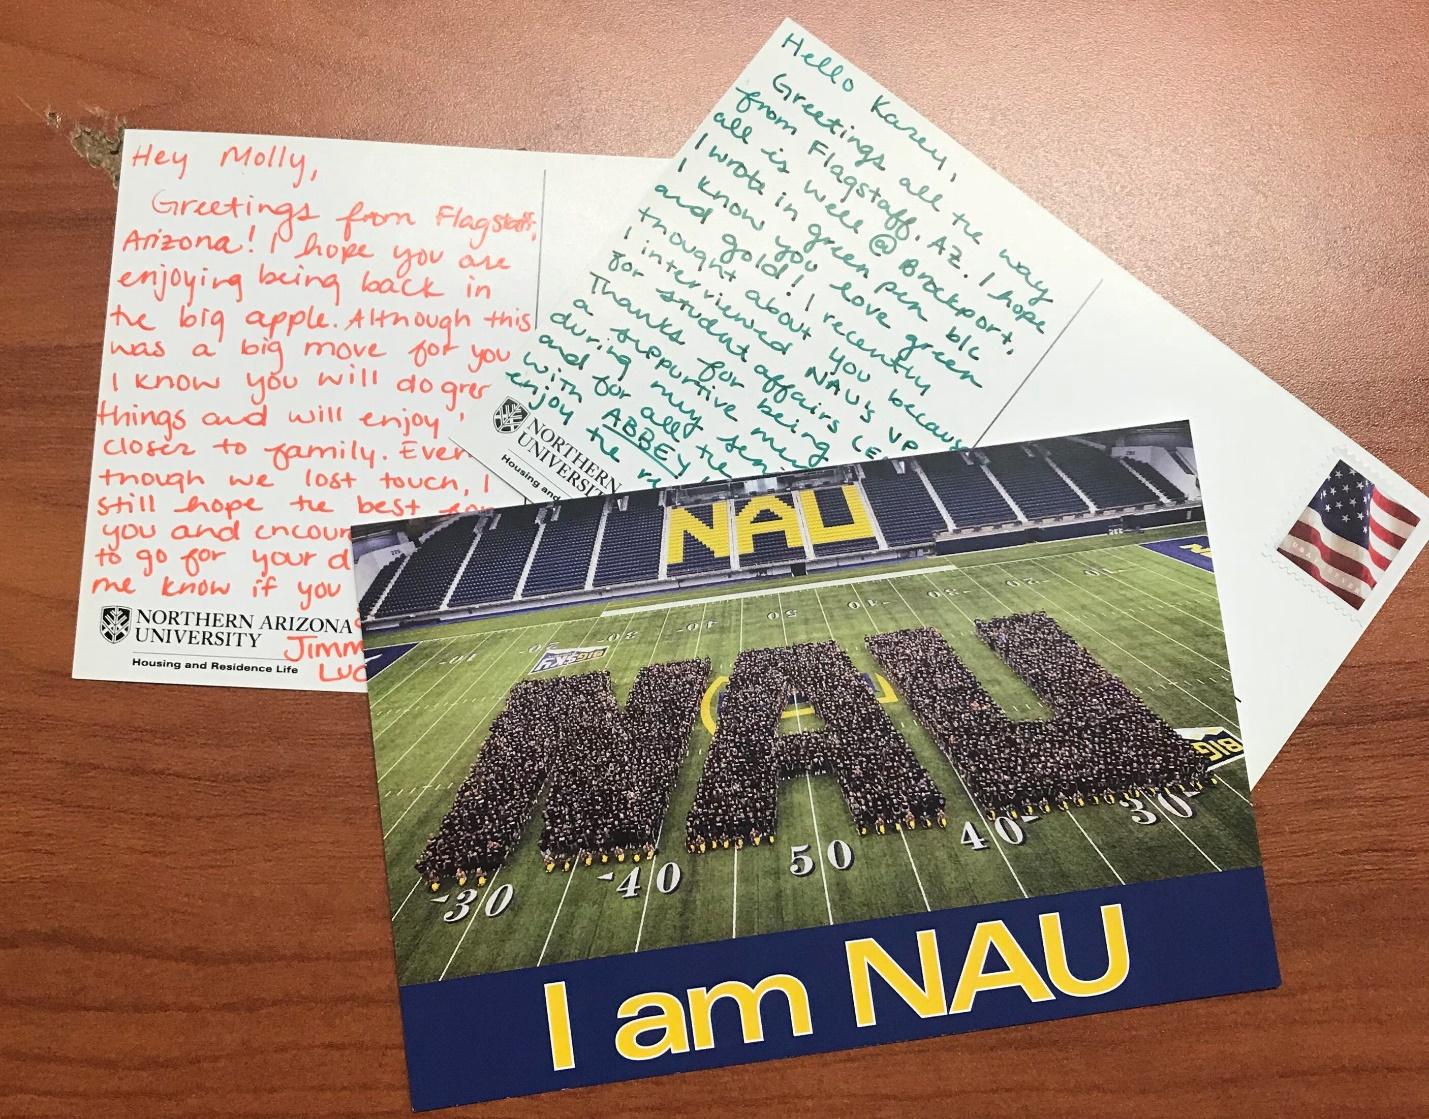 Hey Molly,
Greetings from Flagstaff,
Arizona! I hope you are
enjoying being back in
the big apple. Although this
was a big move for you
I know you will do
things and will enjoy
closer to family. Even
though we lost touch, I
still hope the best for
you and
to go for your
me know if you
Jimm
NORTHERN ARIZONA
UNIVERSITY
Housing and Residence Life
Hello Kasey,
Greetings all the way
from Flagstaff, AZ. I hope
all is well @ Brockport,
I wrote in green pen b/c
I know you love green
and gold! I recently
thought about you because
I interviewed NAU's VP
for student affairs
Thanks for being
a supportive
during my
and for all the
with ABBEY
enjoy the
NORTHERN
UNIVERSITY
Housing and
USA
NAU
-10 -20 -30 -40 50 -40 -30 -20 -10
BIG SKY
BIG
-30 -40 50 40- 30-
I am NAU